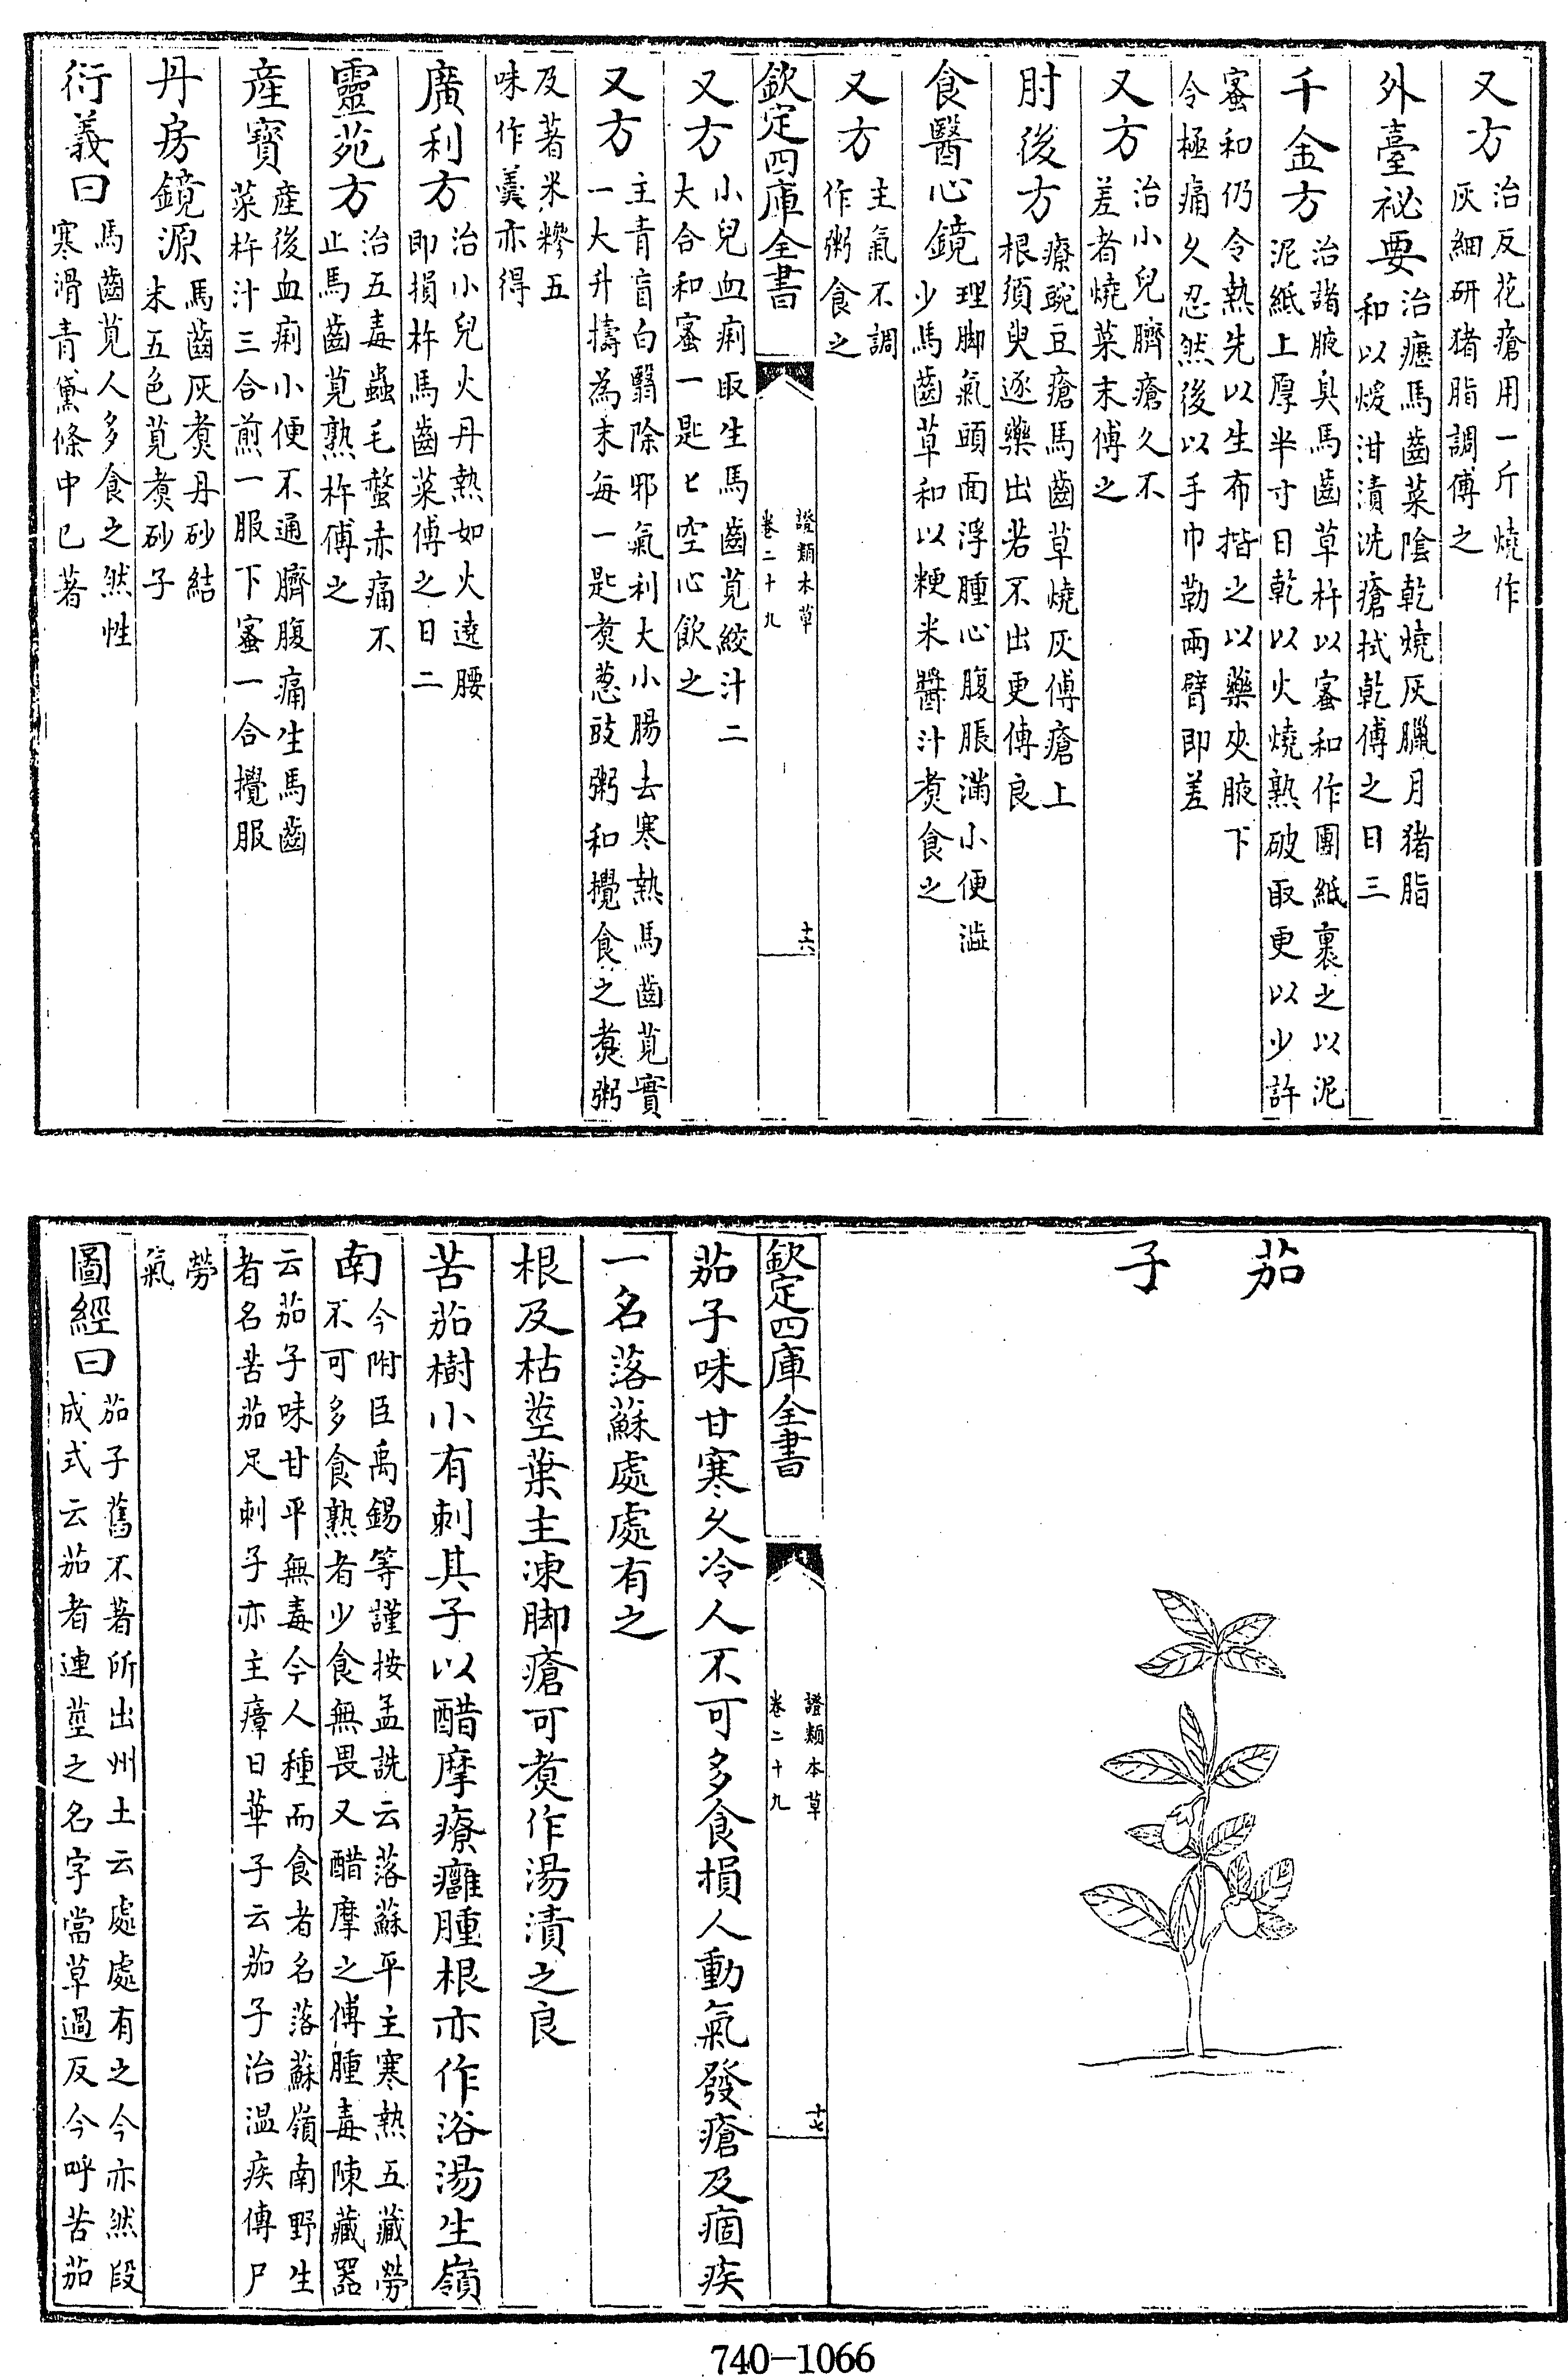 又方治反花瘡用一斤燒作
灰細研猪脂調傅之
外臺祕要治瘑馬齒菜陰乾燒灰臘月猪脂
和以煖泔漬洗瘡拭乾傅之日三
千金方治諸腋臭馬齒草杵以蜜和作團紙裹之以泥
泥紙上厚半寸日乾以火燒熟破取更以少許
蜜和仍令熱先以生布揩之以藥夾腋下
令極痛久忍然後以手巾勒兩臂即差
又方治小兒臍瘡久不
差者燒菜末傅之
肘後方療豌豆瘡馬齒草燒灰傅瘡上
根須臾逐藥出若不出更傅良
食醫心鏡理脚氣頭面浮腫心腹脹滿小便澁
少馬齒草和以粳米醬汁煑食之
又方主氣不調
作粥食之
欽定四庫全書
證類本草
卷二十九
十六
又方小兒血痢取生馬齒莧絞汁二
大合和蜜一匙匕空心飲之
又方主青盲白翳除邪氣利大小腸去寒熱馬齒莧實
一大升擣為末每一匙煑葱豉粥和攪食之煑粥
及著米糝五
味作羹亦得
廣利方治小兒火丹熱如火遶腰
即損杵馬齒菜傅之日二
靈苑方治五毒蟲毛螫赤痛不
止馬齒莧熟杵傅之
產寶產後血痢小便不通臍腹痛生馬齒
菜杵汁三合煎一服下蜜一合攪服
丹房鏡源馬齒灰煑丹砂結
末五色莧煑砂子
衍義曰馬齒莧人多食之然性
寒滑青黛條中已著
茄子
欽定四庫全書
證類本草
卷二十九
十七
茄子味甘寒久冷人不可多食損人動氣發瘡及痼疾
一名落蘇處處有之
根及枯莖葉主凍脚瘡可煑作湯漬之良
苦茄樹小有刺其子以醋摩療癰腫根亦作浴湯生嶺
南今附臣禹錫等謹按孟詵云落蘇平主寒熱五藏勞
不可多食熟者少食無畏又醋摩之傅腫毒陳藏器
云茄子味甘平無毒今人種而食者名落蘇嶺南野生
者名苦茄足刺子亦主瘴日華子云茄子治温疾傳尸
勞
氣
圖經曰茄子舊不著所出州土云處處有之今亦然段
成式云茄者連莖之名字當草遐反今呼苦茄
740-1066